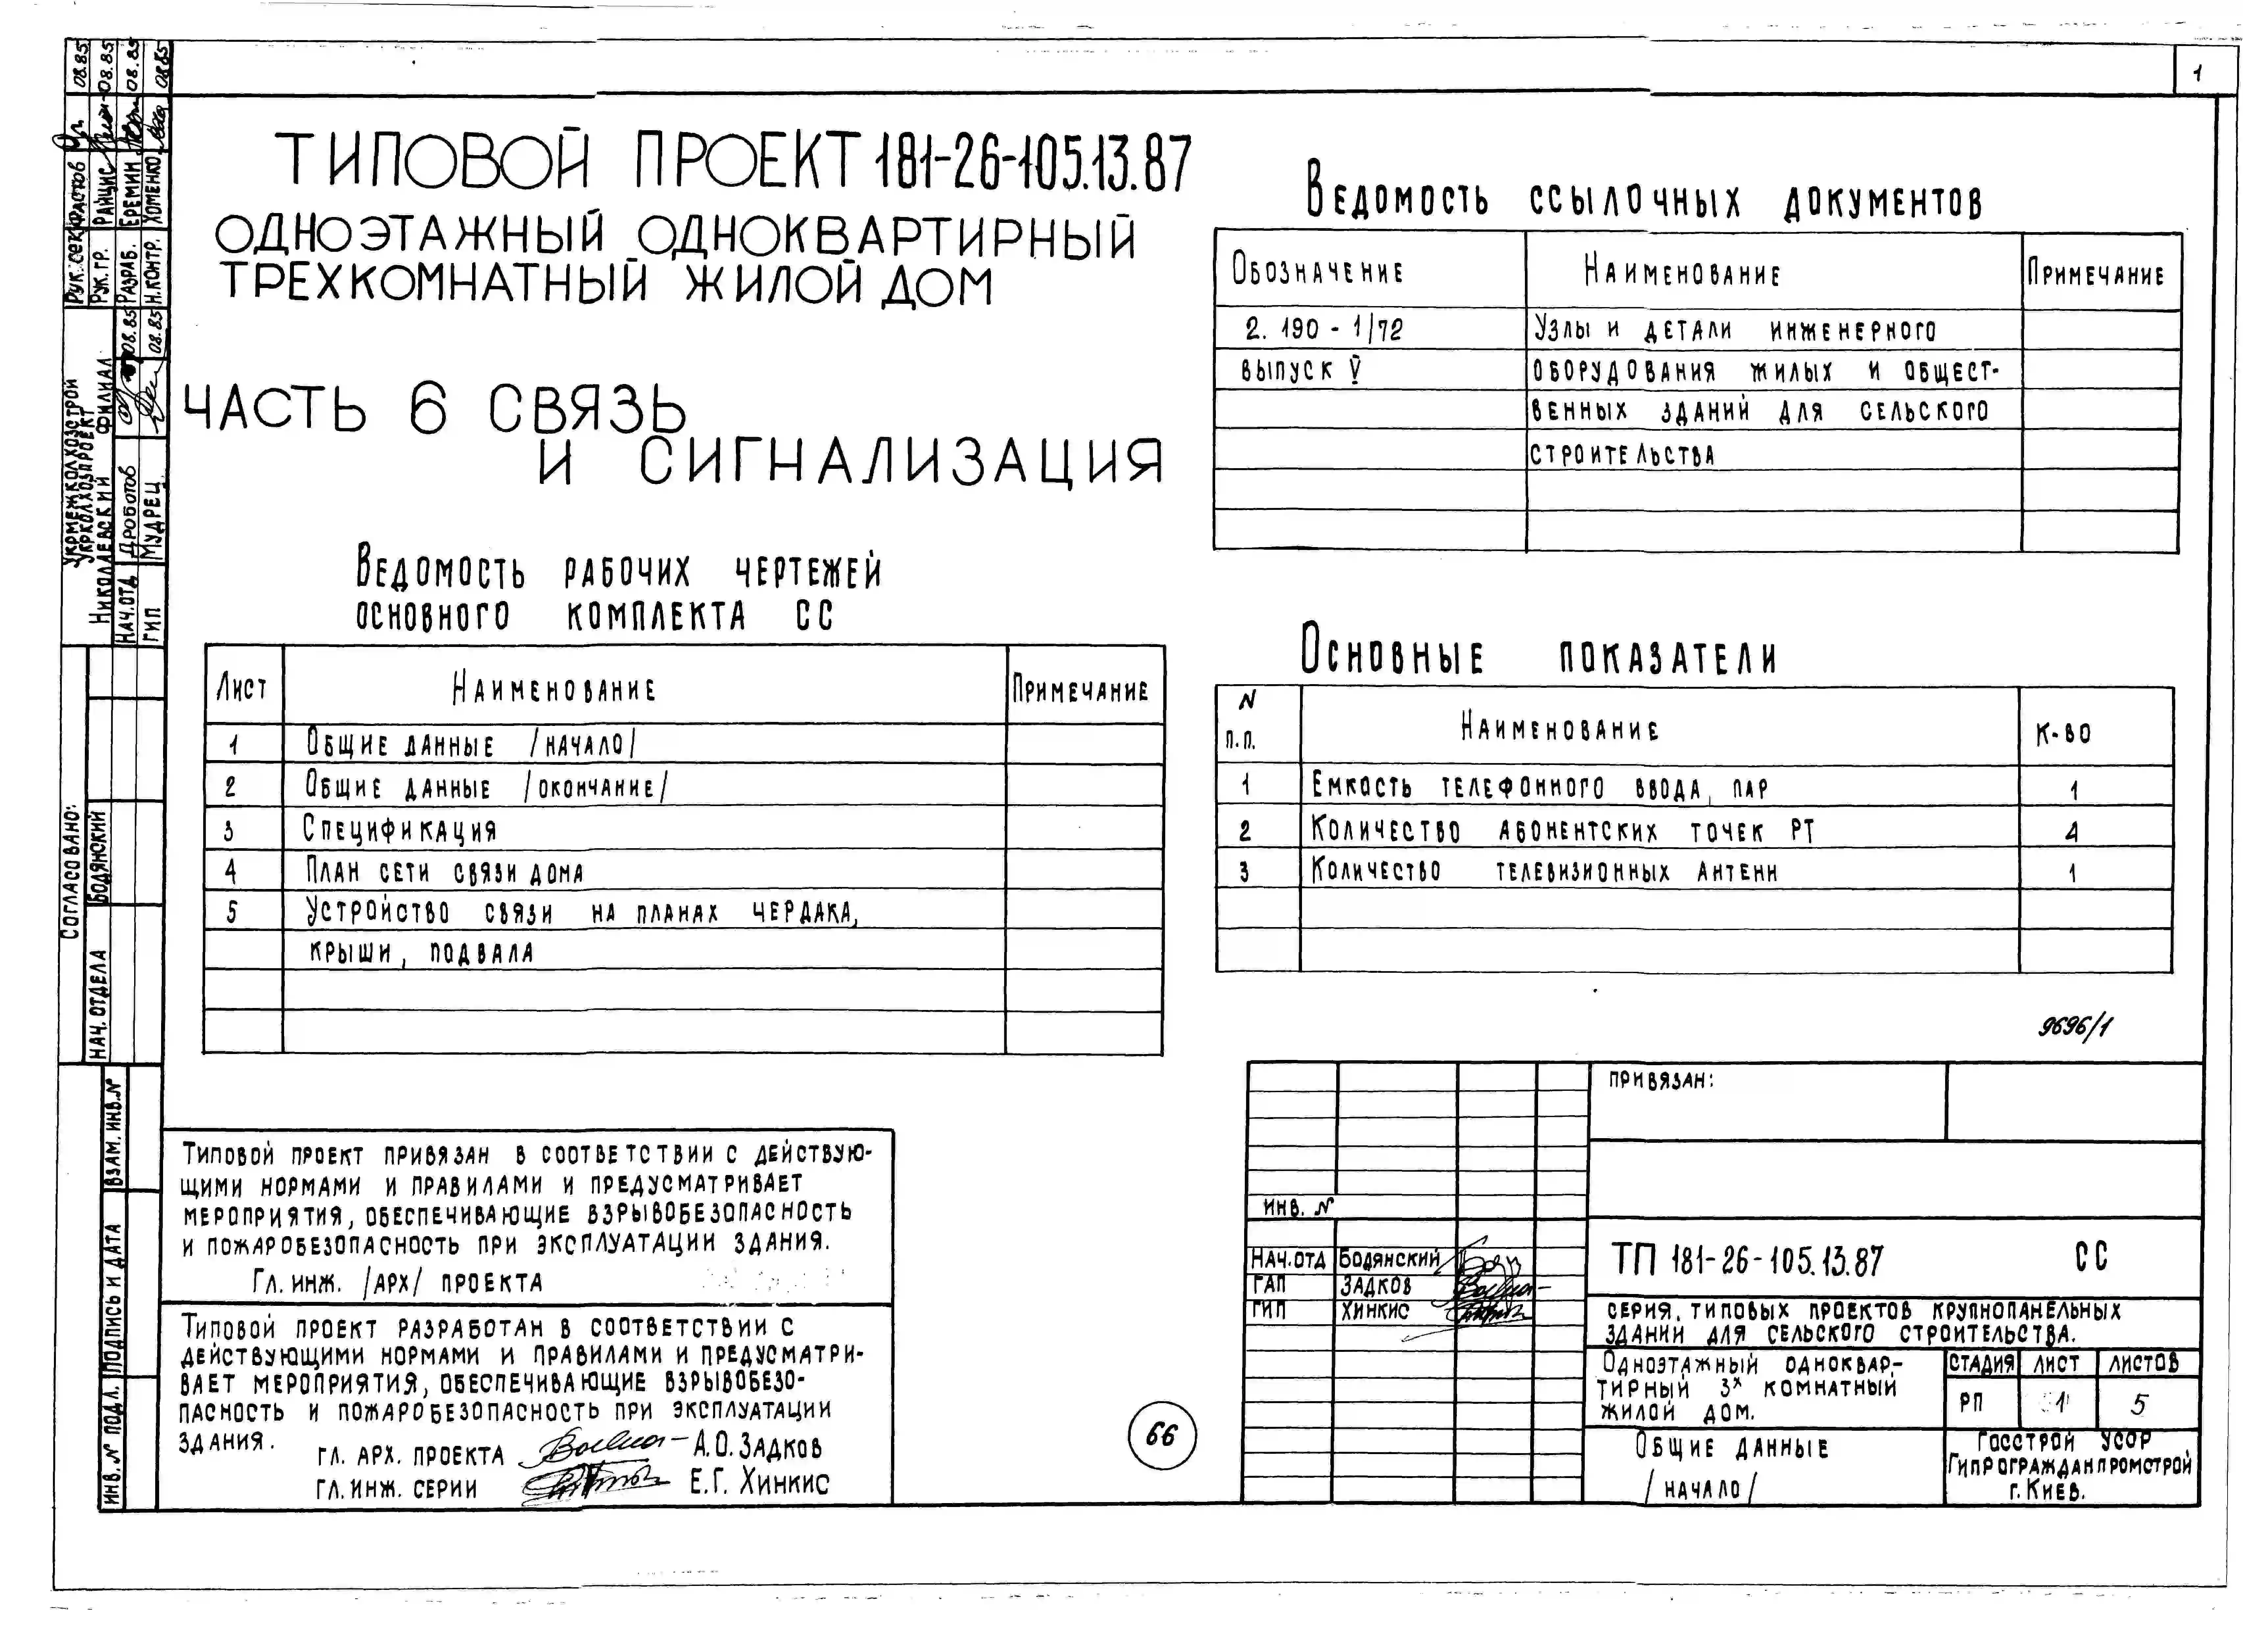 1
ТИПОВОЙ ПРОЕКТ 181-26-105.13.87
ОДНОЭТАЖНЫЙ ОДНОКВАРТИРНЫЙ
ТРЕХКОМНАТНЫЙ ЖИЛОЙ ДОМ
ЧАСТЬ 6 СВЯЗЬ
И СИГНАЛИЗАЦИЯ
ВЕДОМОСТЬ РАБОЧИХ ЧЕРТЕЖЕЙ
ОСНОВНОГО КОМПЛЕКТА СС
ЛИСТ НАИМЕНОВАНИЕ ПРИМЕЧАНИЕ
1 ОБЩИЕ ДАННЫЕ /НАЧАЛО/
2 ОБЩИЕ ДАННЫЕ /ОКОНЧАНИЕ/
3 СПЕЦИФИКАЦИЯ
4 ПЛАН СЕТИ СВЯЗИ ДОМА
5 УСТРОЙСТВО СВЯЗИ НА ПЛАНАХ ЧЕРДАКА,
КРЫШИ, ПОДВАЛА
ВЕДОМОСТЬ ССЫЛОЧНЫХ ДОКУМЕНТОВ
ОБОЗНАЧЕНИЕ НАИМЕНОВАНИЕ ПРИМЕЧАНИЕ
2.190-1/72 УЗЛЫ И ДЕТАЛИ ИНЖЕНЕРНОГО
ВЫПУСК V ОБОРУДОВАНИЯ ЖИЛЫХ И ОБЩЕСТ-
ВЕННЫХ ЗДАНИЙ ДЛЯ СЕЛЬСКОГО
СТРОИТЕЛЬСТВА
ОСНОВНЫЕ ПОКАЗАТЕЛИ
N П.П. НАИМЕНОВАНИЕ К-ВО
1 ЕМКОСТЬ ТЕЛЕФОННОГО ВВОДА, ПАР 1
2 КОЛИЧЕСТВО АБОНЕНТСКИХ ТОЧЕК РТ 4
3 КОЛИЧЕСТВО ТЕЛЕВИЗИОННЫХ АНТЕНН 1
9696/1
ТИПОВОЙ ПРОЕКТ ПРИВЯЗАН В СООТВЕТСТВИИ С ДЕЙСТВУЮ-
ЩИМИ НОРМАМИ И ПРАВИЛАМИ И ПРЕДУСМАТРИВАЕТ
МЕРОПРИЯТИЯ, ОБЕСПЕЧИВАЮЩИЕ ВЗРЫВОБЕЗОПАСНОСТЬ
И ПОЖАРОБЕЗОПАСНОСТЬ ПРИ ЭКСПЛУАТАЦИИ ЗДАНИЯ.
ГЛ. ИНЖ. /АРХ/ ПРОЕКТА
ТИПОВОЙ ПРОЕКТ РАЗРАБОТАН В СООТВЕТСТВИИ С
ДЕЙСТВУЮЩИМИ НОРМАМИ И ПРАВИЛАМИ И ПРЕДУСМАТРИ-
ВАЕТ МЕРОПРИЯТИЯ, ОБЕСПЕЧИВАЮЩИЕ ВЗРЫВОБЕЗО-
ПАСНОСТЬ И ПОЖАРОБЕЗОПАСНОСТЬ ПРИ ЭКСПЛУАТАЦИИ
ЗДАНИЯ.
ГЛ. АРХ. ПРОЕКТА А.О. ЗАДКОВ
ГЛ. ИНЖ. СЕРИИ Е.Г. ХИНКИС
66
ПРИВЯЗАН:
ИНВ. №
НАЧ.ОТД БОДЯНСКИЙ
ГАП ЗАДКОВ
ГИП ХИНКИС
ТП 181-26-105.13.87 СС
СЕРИЯ. ТИПОВЫХ ПРОЕКТОВ КРУПНОПАНЕЛЬНЫХ
ЗДАНИЙ ДЛЯ СЕЛЬСКОГО СТРОИТЕЛЬСТВА.
ОДНОЭТАЖНЫЙ ОДНОКВАР-
ТИРНЫЙ 3Х КОМНАТНЫЙ
ЖИЛОЙ ДОМ.
СТАДИЯ ЛИСТ ЛИСТОВ
РП 1 5
ОБЩИЕ ДАННЫЕ
/НАЧАЛО/
ГОССТРОЙ УССР
ГИПРОГРАЖДАНПРОМСТРОЙ
Г. КИЕВ.
РУК. СЕК ФАСТОВ 08.85
РУК. ГР. РАЙЦИС 08.85
РАЗРАБ. ЕРЕМИН 08.85
Н.КОНТР. ХОМЕНКО 08.85
УКРМЕЖКОЛХОЗСТРОЙ
УКРКОЛХОЗПРОЕКТ
НИКОЛАЕВСКИЙ ФИЛИАЛ
НАЧ.ОТД ДРОБОТОВ 08.85
ГИП МУДРЕЦ 08.85
СОГЛАСОВАНО:
НАЧ. ОТДЕЛА БОДЯНСКИЙ
ВЗАМ. ИНВ.№
ПОДПИСЬ И ДАТА
ИНВ.№ ПОДЛ.